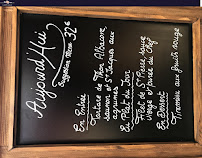 Aujourd'Hui
Suggestion Menu 32€
En Entrée
Tartare de Thon Albacore
saumon et St Jacques aux
agrumes
Le Plat du Jour
Filet de St Pierre sauce
vierge et purée du Chef
En Dessert
Tiramisu aux fruits rouge